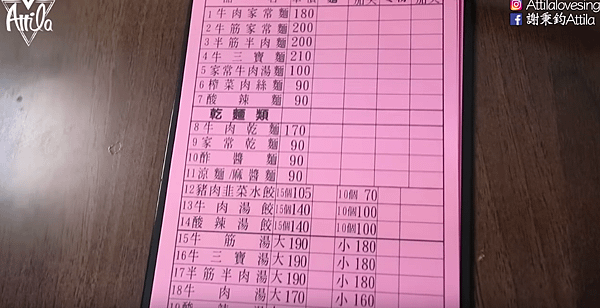 Attila
Attilalovesing
謝秉鈞Attila
1牛肉家常麵 180
2牛筋家常麵 200
3半筋半肉麵 200
4牛三寶麵 210
5家常牛肉湯麵 100
6榨菜肉絲麵 90
7酸辣麵 90
乾麵類
8牛肉乾麵 170
9家常乾麵 90
10酢醬麵 90
11涼麵/麻醬麵 90
12豬肉韭菜水餃 15個105 10個 70
13牛肉湯餃 15個140 10個100
14酸辣湯餃 15個140 10個100
15牛筋湯 大190 小180
16牛三寶湯 大190 小180
17半筋半肉湯 大190 小180
18牛肉湯 大170 小160